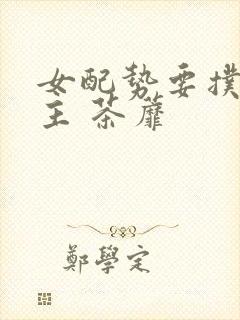 女配勢要撲
主 荼蘼
鄭學定